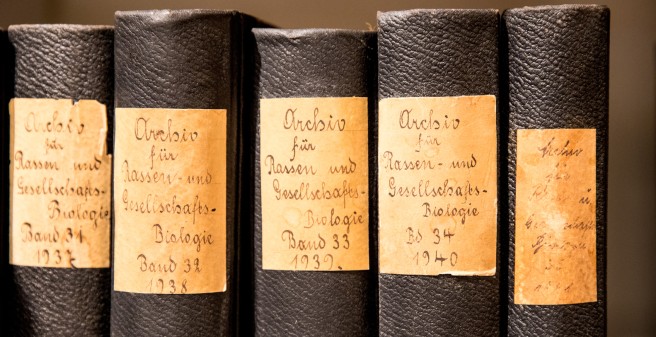 Archiv
für
Rassen und
Gesellschafts-
Biologie
Band 31
1937
Archiv
für
Rassen- und
Gesellschafts-
Biologie
Band 32
1938
Archiv
für
Rassen und
Gesellschafts-
Biologie
Band 33
1939.
Archiv
für
Rassen- und
Gesellschafts-
Biologie
Bd 34
1940